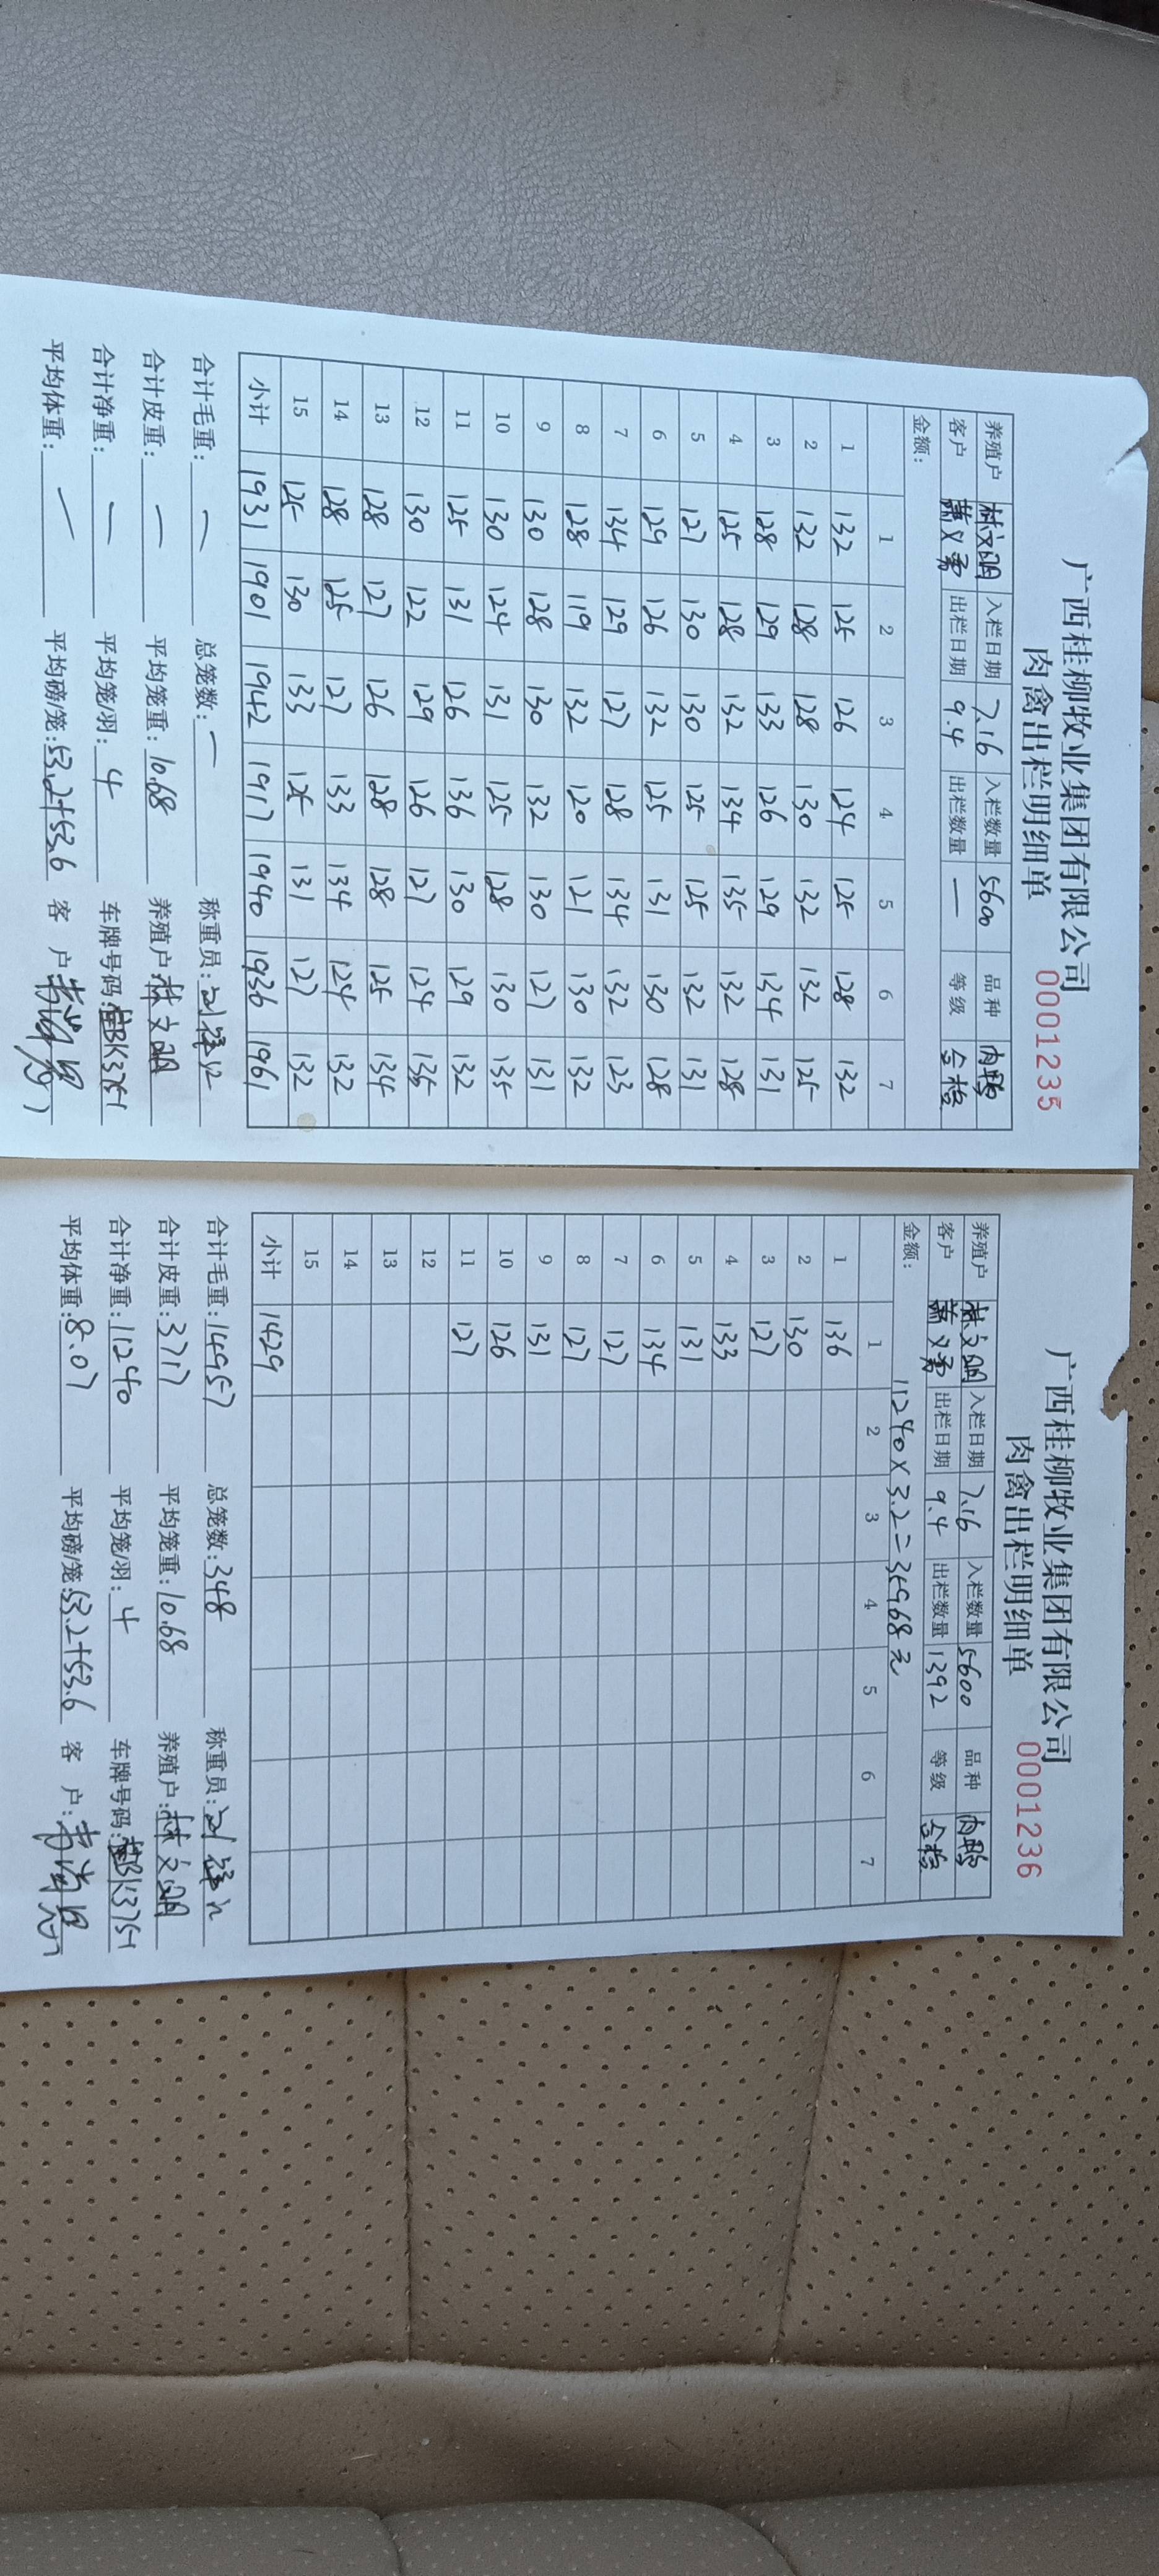 广西桂柳牧业集团有限公司
肉禽出栏明细单
0001235
养殖户 林文明 入栏日期 7.16 入栏数量 5600 品种 肉鸭
客户 出栏日期 9.4 出栏数量 — 等级 合格
金额:
1 2 3 4 5 6 7
1 132 125 126 124 125 128 132
2 132 128 128 130 132 132 125
3 128 129 133 126 129 134 131
4 125 128 132 134 135 132 128
5 127 130 130 125 125 132 131
6 129 126 132 125 131 130 128
7 134 129 127 128 134 132 123
8 128 119 132 120 121 130 132
9 130 128 130 132 130 127 131
10 130 124 131 125 128 130 135
11 125 131 126 136 130 129 132
12 130 122 129 126 127 124 135
13 128 127 126 128 128 125 134
14 128 125 127 133 134 124 132
15 125 130 133 125 131 127 132
小计 1931 1901 1942 1917 1940 1936 1961
合计毛重: — 总笼数: — 称重员:
合计皮重: — 平均笼重: 10.68 养殖户: 林文明
合计净重: — 平均笼/羽: 4 车牌号码:
平均体重: — 平均磅/笼: 53.2+53.6 客 户:
广西桂柳牧业集团有限公司
肉禽出栏明细单
0001236
养殖户 林文明 入栏日期 7.16 入栏数量 5600 品种 肉鸭
客户 出栏日期 9.4 出栏数量 1392 等级 合格
金额: 11240×3.2=35968元
1 2 3 4 5 6 7
1 136
2 130
3 127
4 133
5 131
6 134
7 127
8 127
9 131
10 126
11 127
12
13
14
15
小计 1429
合计毛重: 14957 总笼数: 348 称重员:
合计皮重: 3717 平均笼重: 10.68 养殖户: 林文明
合计净重: 11240 平均笼/羽: 4 车牌号码:
平均体重: 8.07 平均磅/笼: 53.2+53.6 客 户: